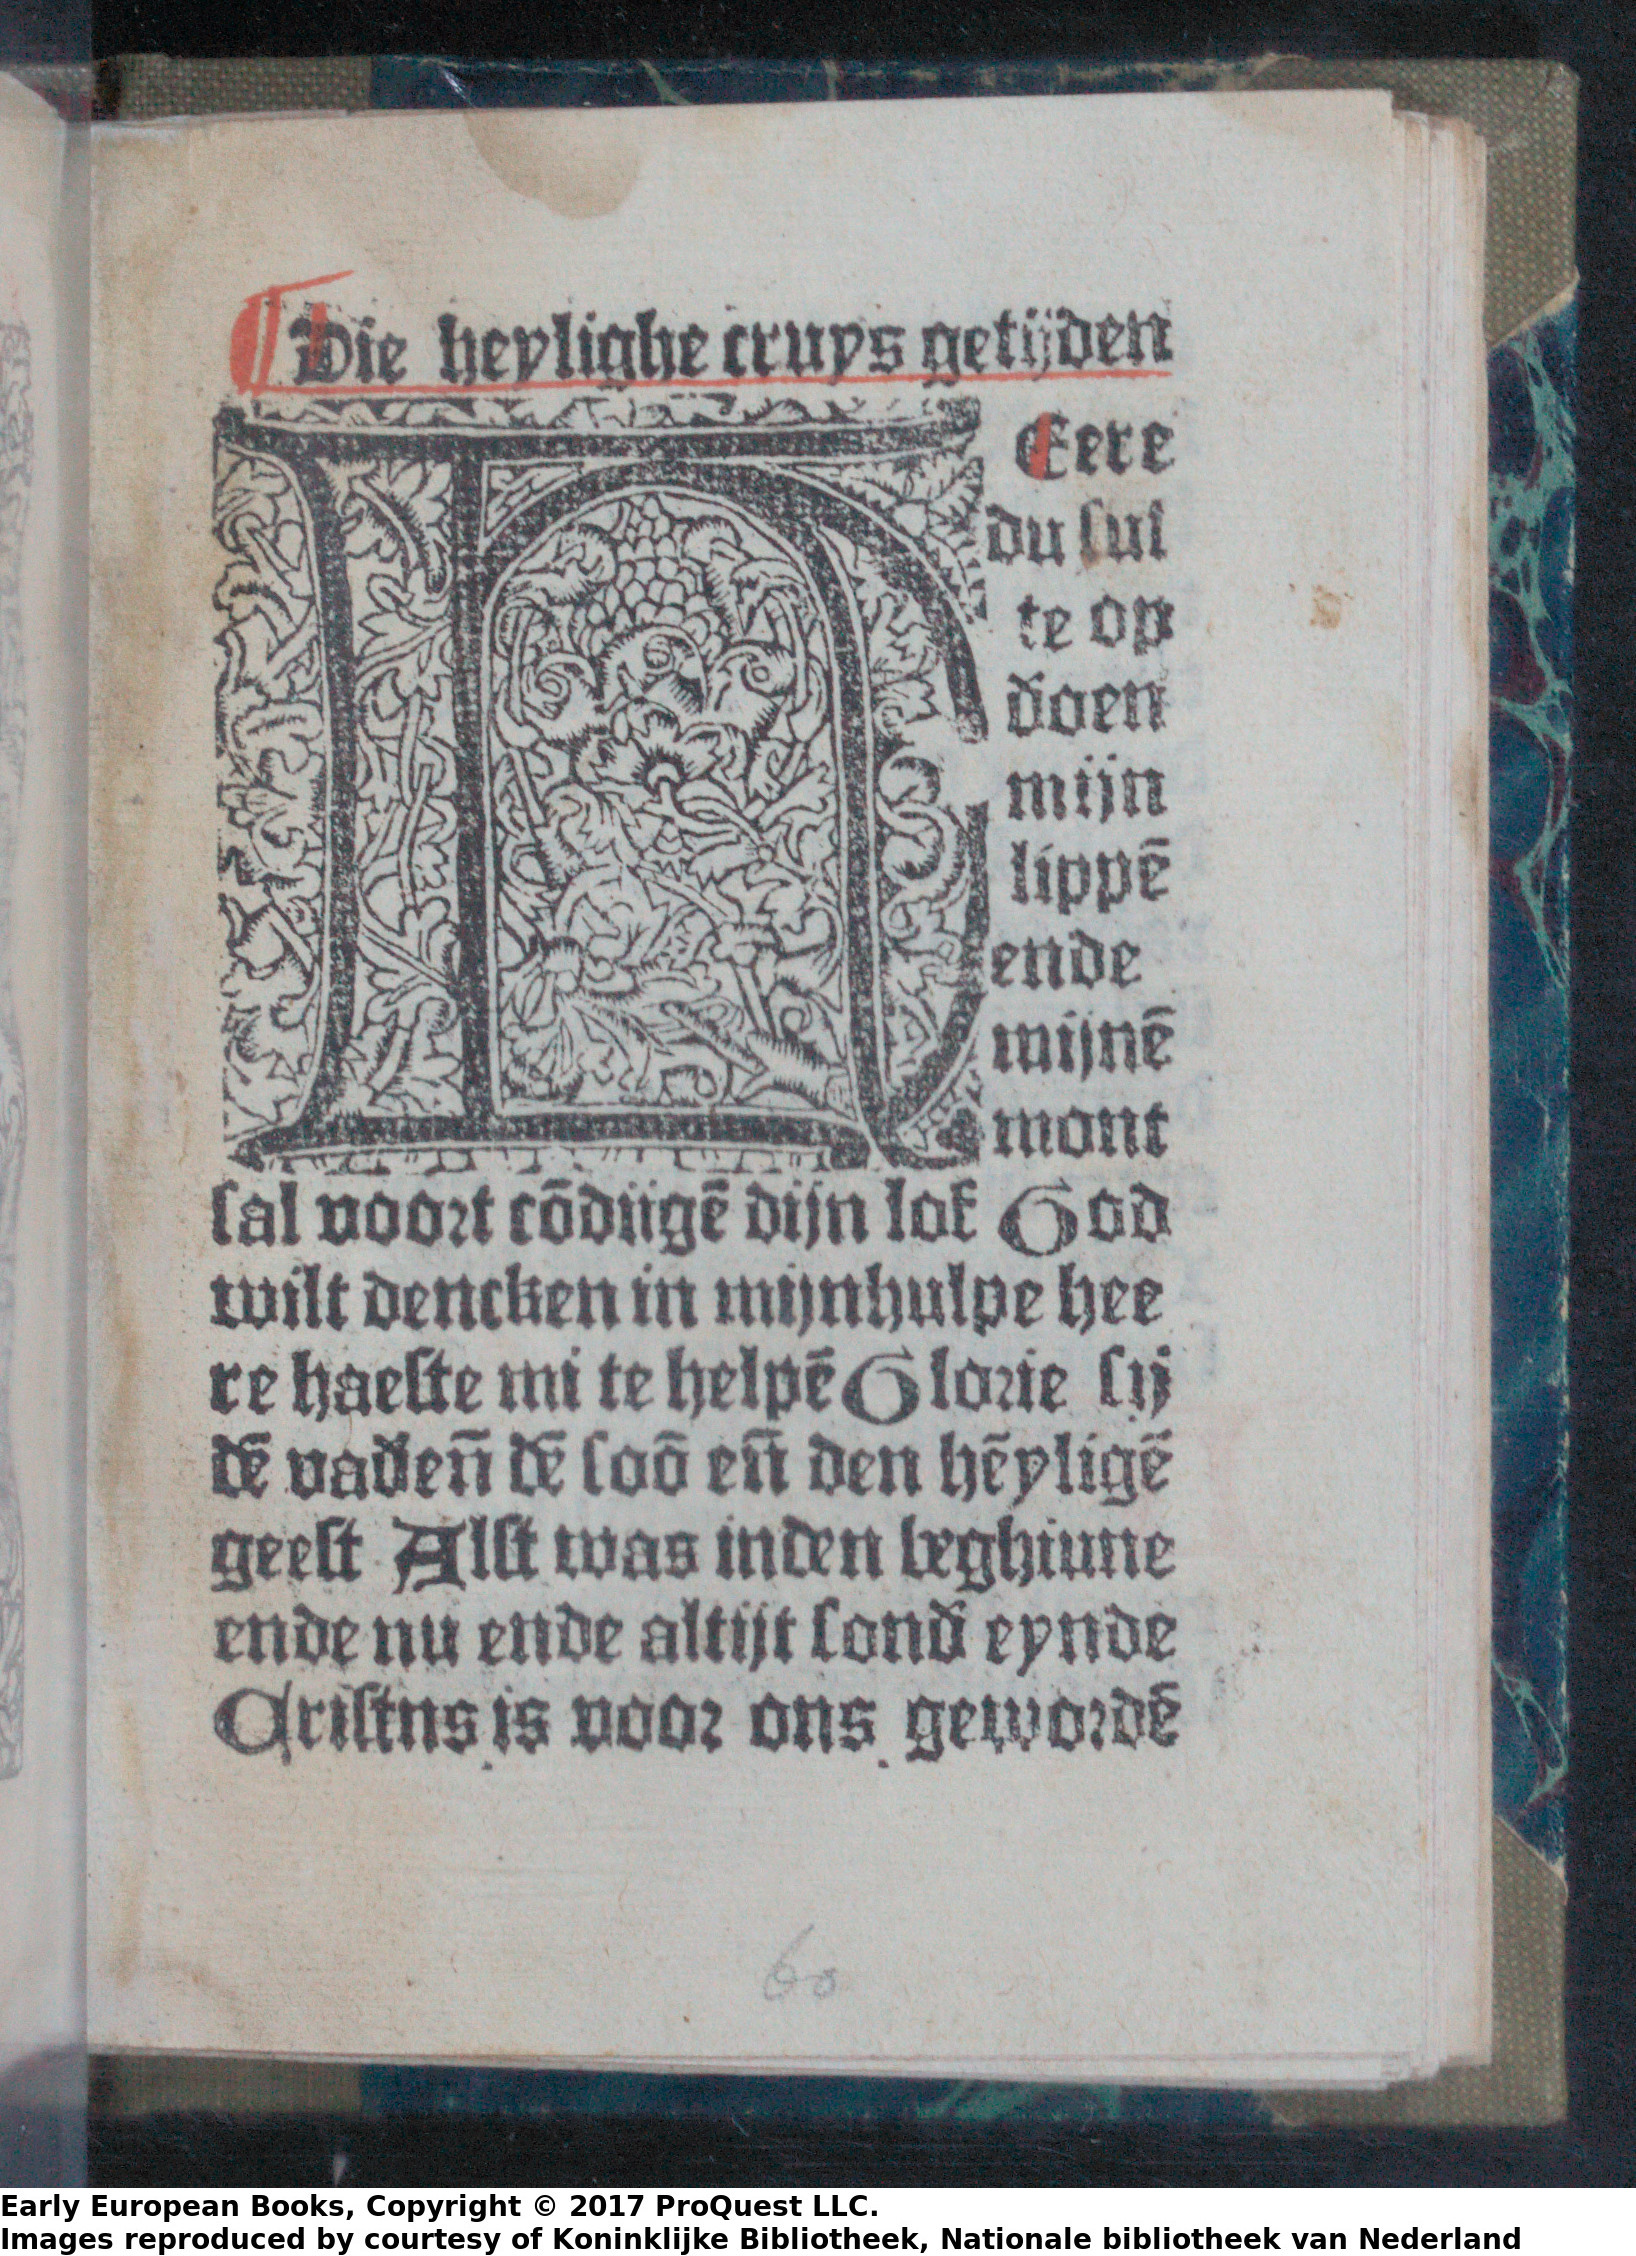 ¶ Die heylighe cruys getijden
HEere
du sul
te op
d̄oen
mijn
lippē
ende
mijnē
mont
sal voort cōdiigē dijn lof God
wilt dencken in mijnhulpe hee
re haeste mi te helpē Glorie sij
dē vad̄en̄ dē soō en̄ den hēyligē
geest Alst was inden beghinne
ende nu ende altijt sond̄ eynde
Cristus is voor ons gewordē
60
Early European Books, Copyright © 2017 ProQuest LLC.
Images reproduced by courtesy of Koninklijke Bibliotheek, Nationale bibliotheek van Nederland